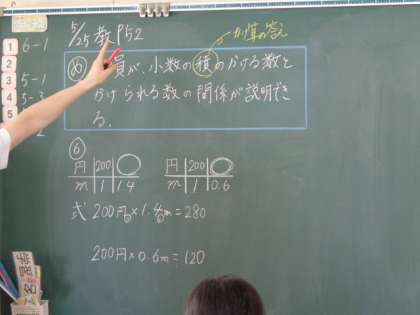 5/25 教 P52
かけ算の答え
め 員が、小数の積のかける数と
かけられる数の関係が説明でき
る.
6-1
5-1
5-3
1
2
3
4
5
⑥
円 200
m 1 1.4
円 200
m 1 0.6
式 200円×1.4m=280
200円×0.6m=120